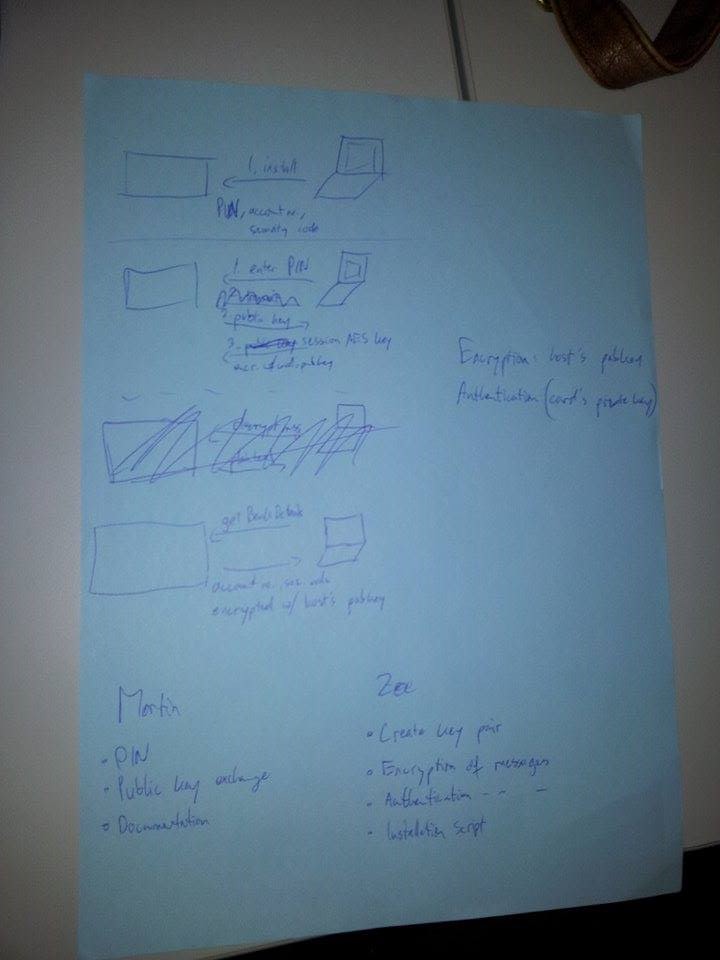 1. install
PIN, account no.,
security code
1. enter PIN
2. public key
3. session AES key
encr. w/ card's pubkey
Encryption: host's pubkey
Authentication (card's private key)
decrypt msg
get Bank Details
account no., sec. code
encrypted w/ host's pubkey
Martin
• PIN
• Public key exchange
• Documentation
Zoe
• Create key pair
• Encryption of messages
• Authentication - " -
• Installation script